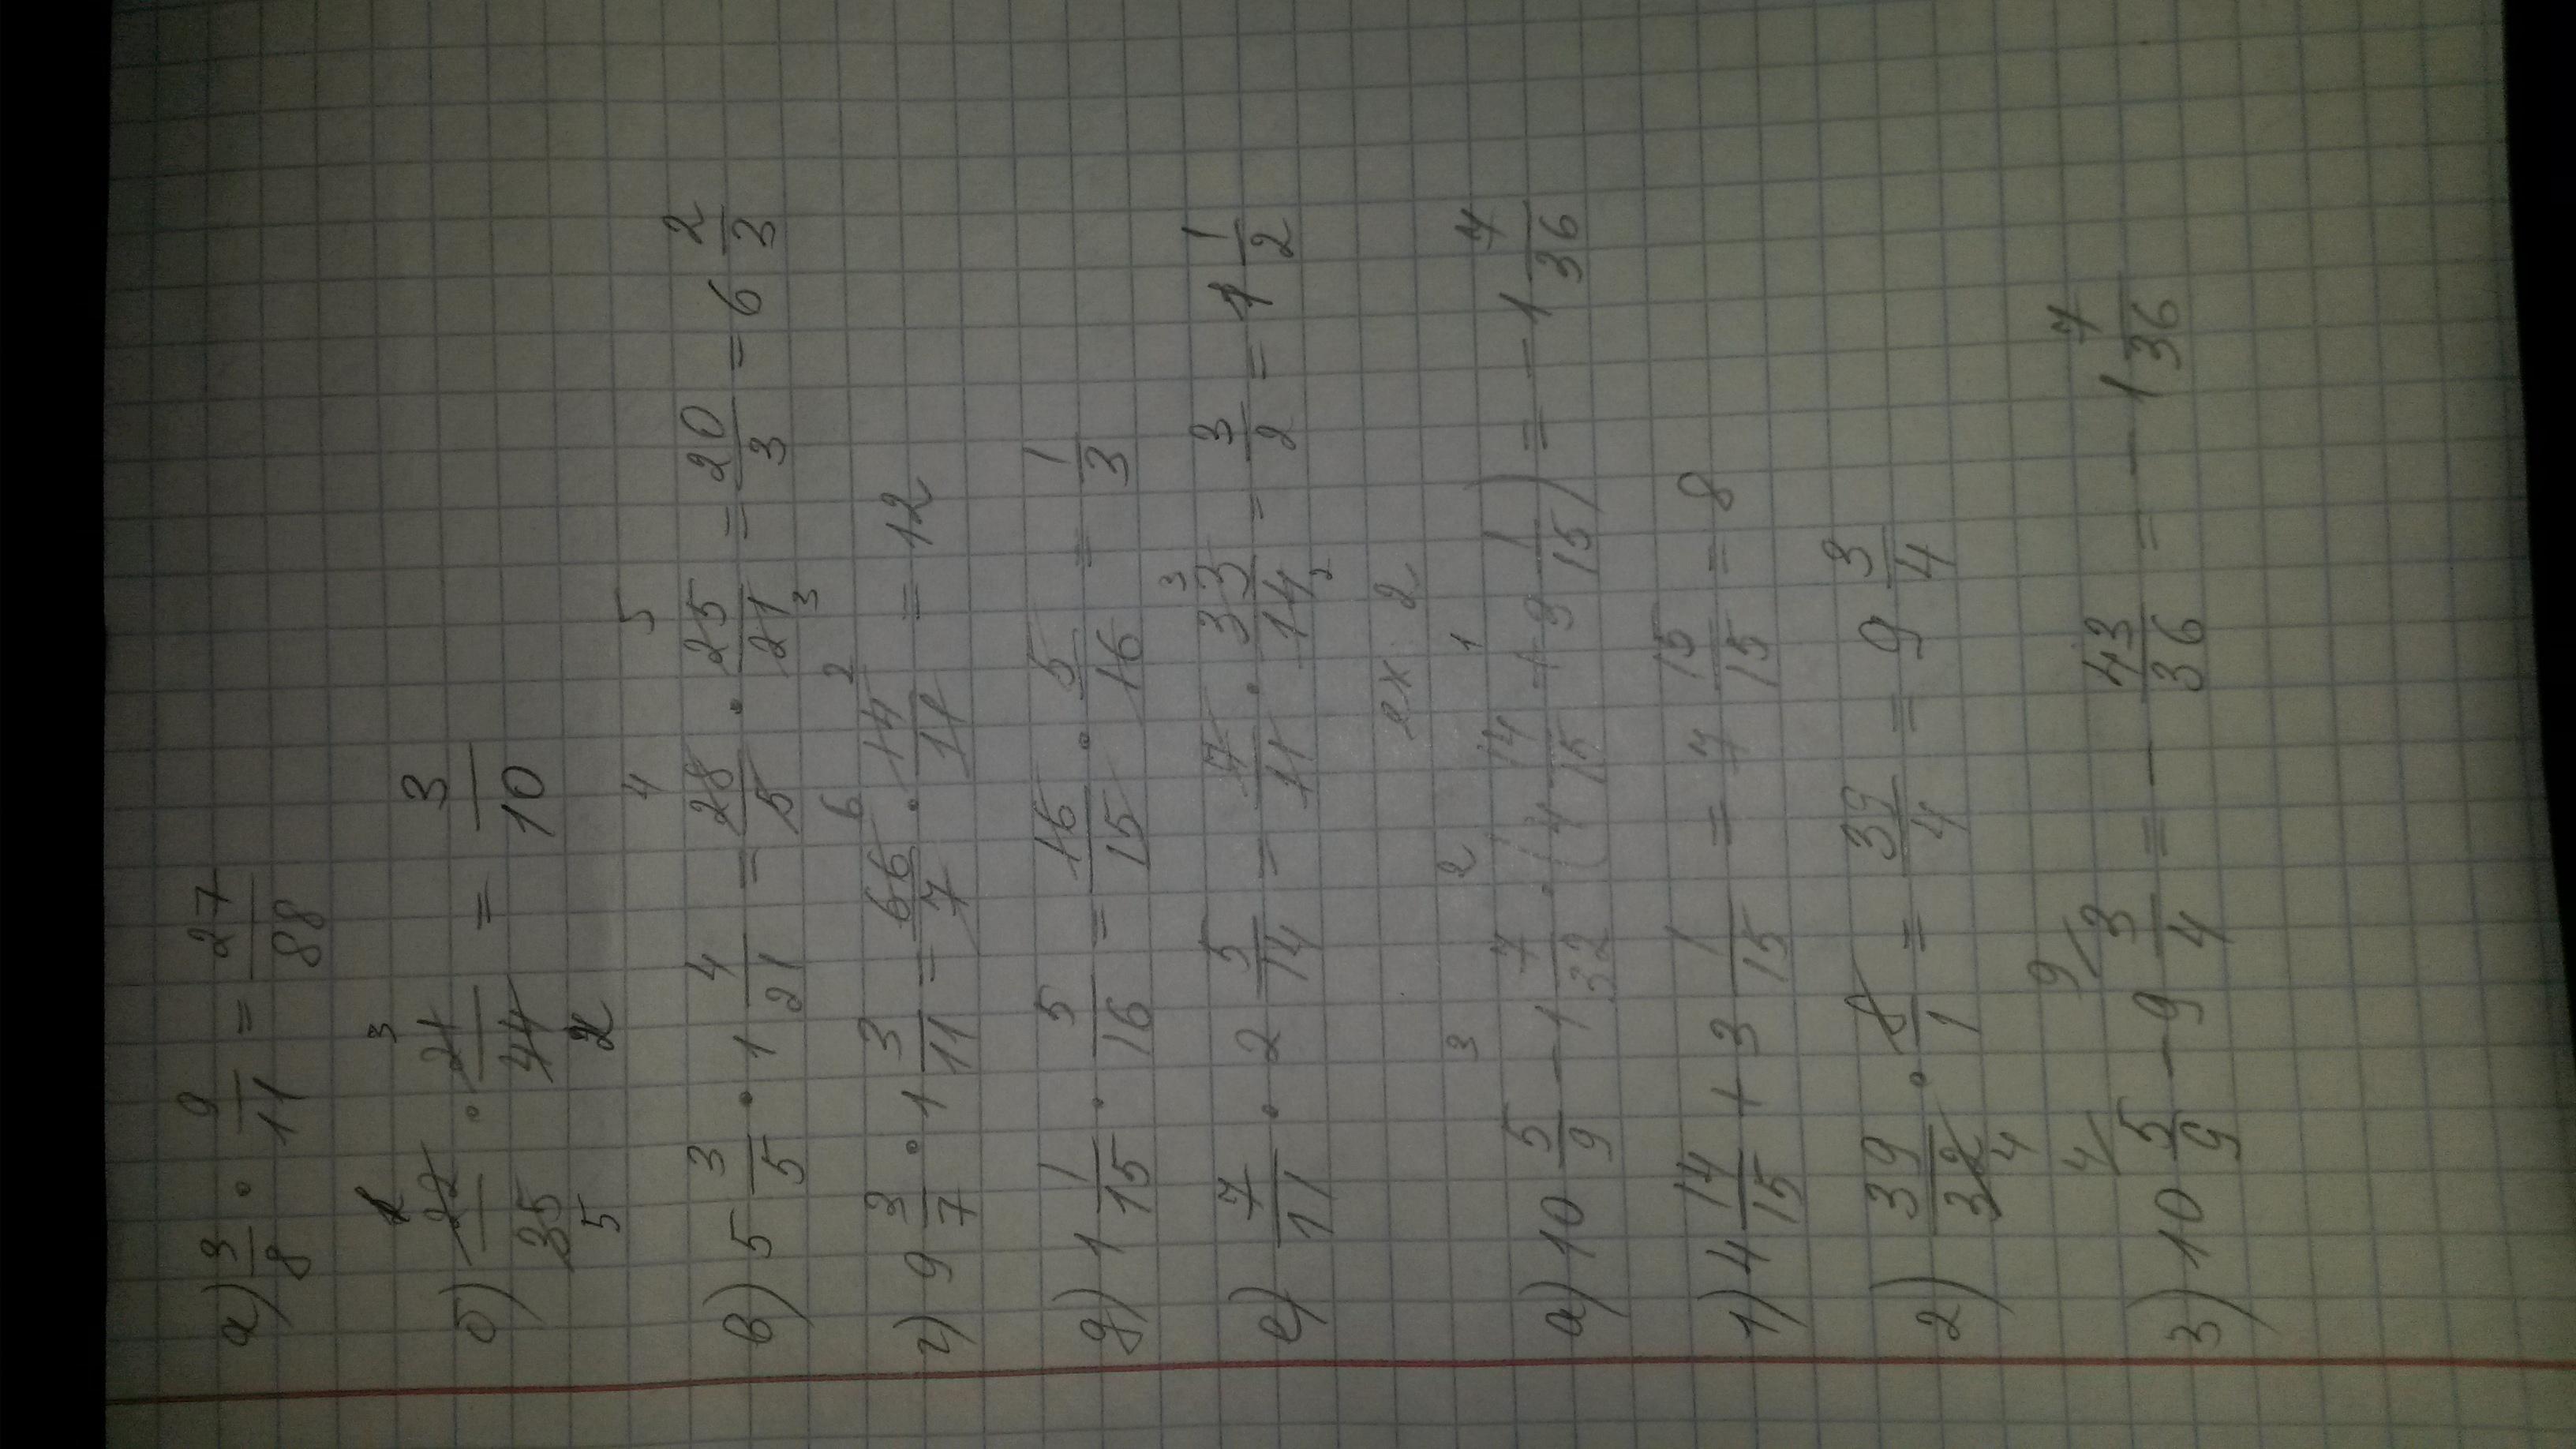 а) 3/8 · 9/11 = 27/88
б) 22/35 · 21/44 = 3/10
в) 5 3/5 · 1 4/21 = 28/5 · 25/21 = 20/3 = 6 2/3
г) 9 3/7 · 1 3/11 = 66/7 · 14/11 = 12
д) 1 1/15 · 5/16 = 16/15 · 5/16 = 1/3
е) 7/11 · 2 5/14 = 7/11 · 33/14 = 3/2 = 1 1/2
ex 2
а) 10 5/9 - 1 7/32 · (4 14/15 + 3 1/15) = - 1 7/36
1) 4 14/15 + 3 1/15 = 7 15/15 = 8
2) 39/32 · 8/1 = 39/4 = 9 3/4
3) 10 5/9 - 9 3/4 = - 43/36 = - 1 7/36